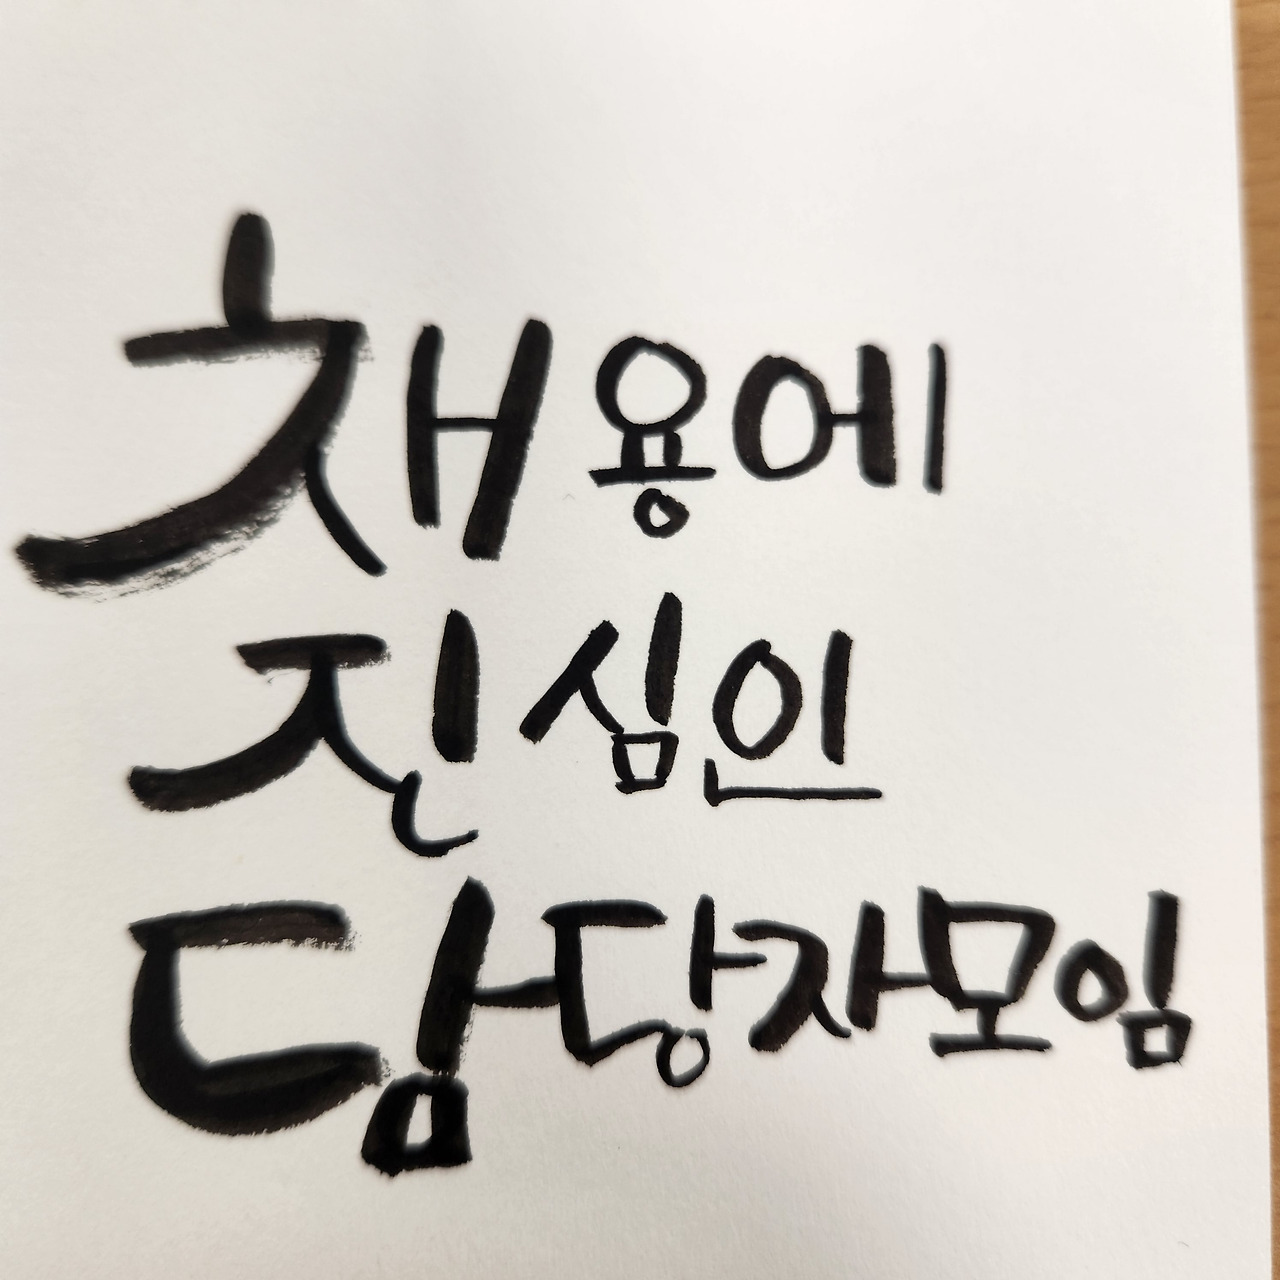 채용에
진심인
담당자모임